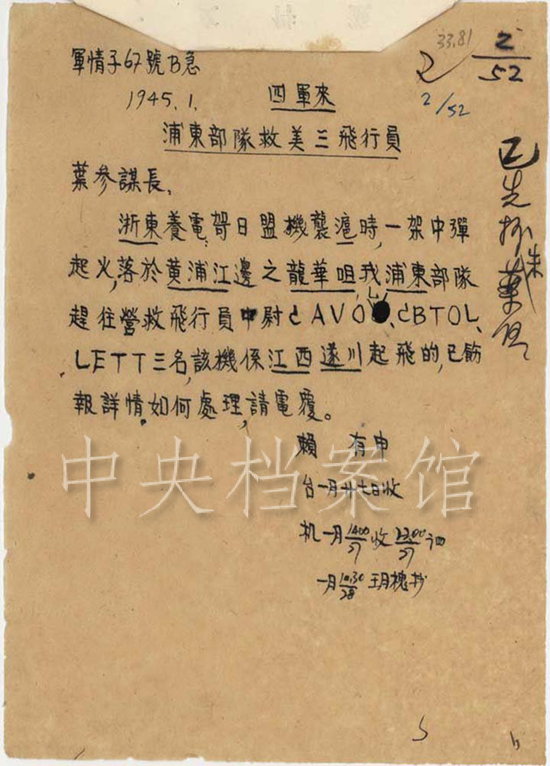 33.81
2
2/52
2/52
軍情子67號B急
1945.1. 四軍來
浦東部隊救美三飛行員
葉參謀長、
浙東養電哿日盟機襲滬時,一架中彈
起火,落於黄浦江邊之龍華咀,我浦東部隊
趕往營救飛行員中尉CAVO、CBTOL、
LETT三名,該機係江西遂川起飛的,已飭
報詳情,如何處理,請電覆。
賴 有申
台一月廿七日收
机一月1400/27收2200/27
一月1030/28
中央档案馆